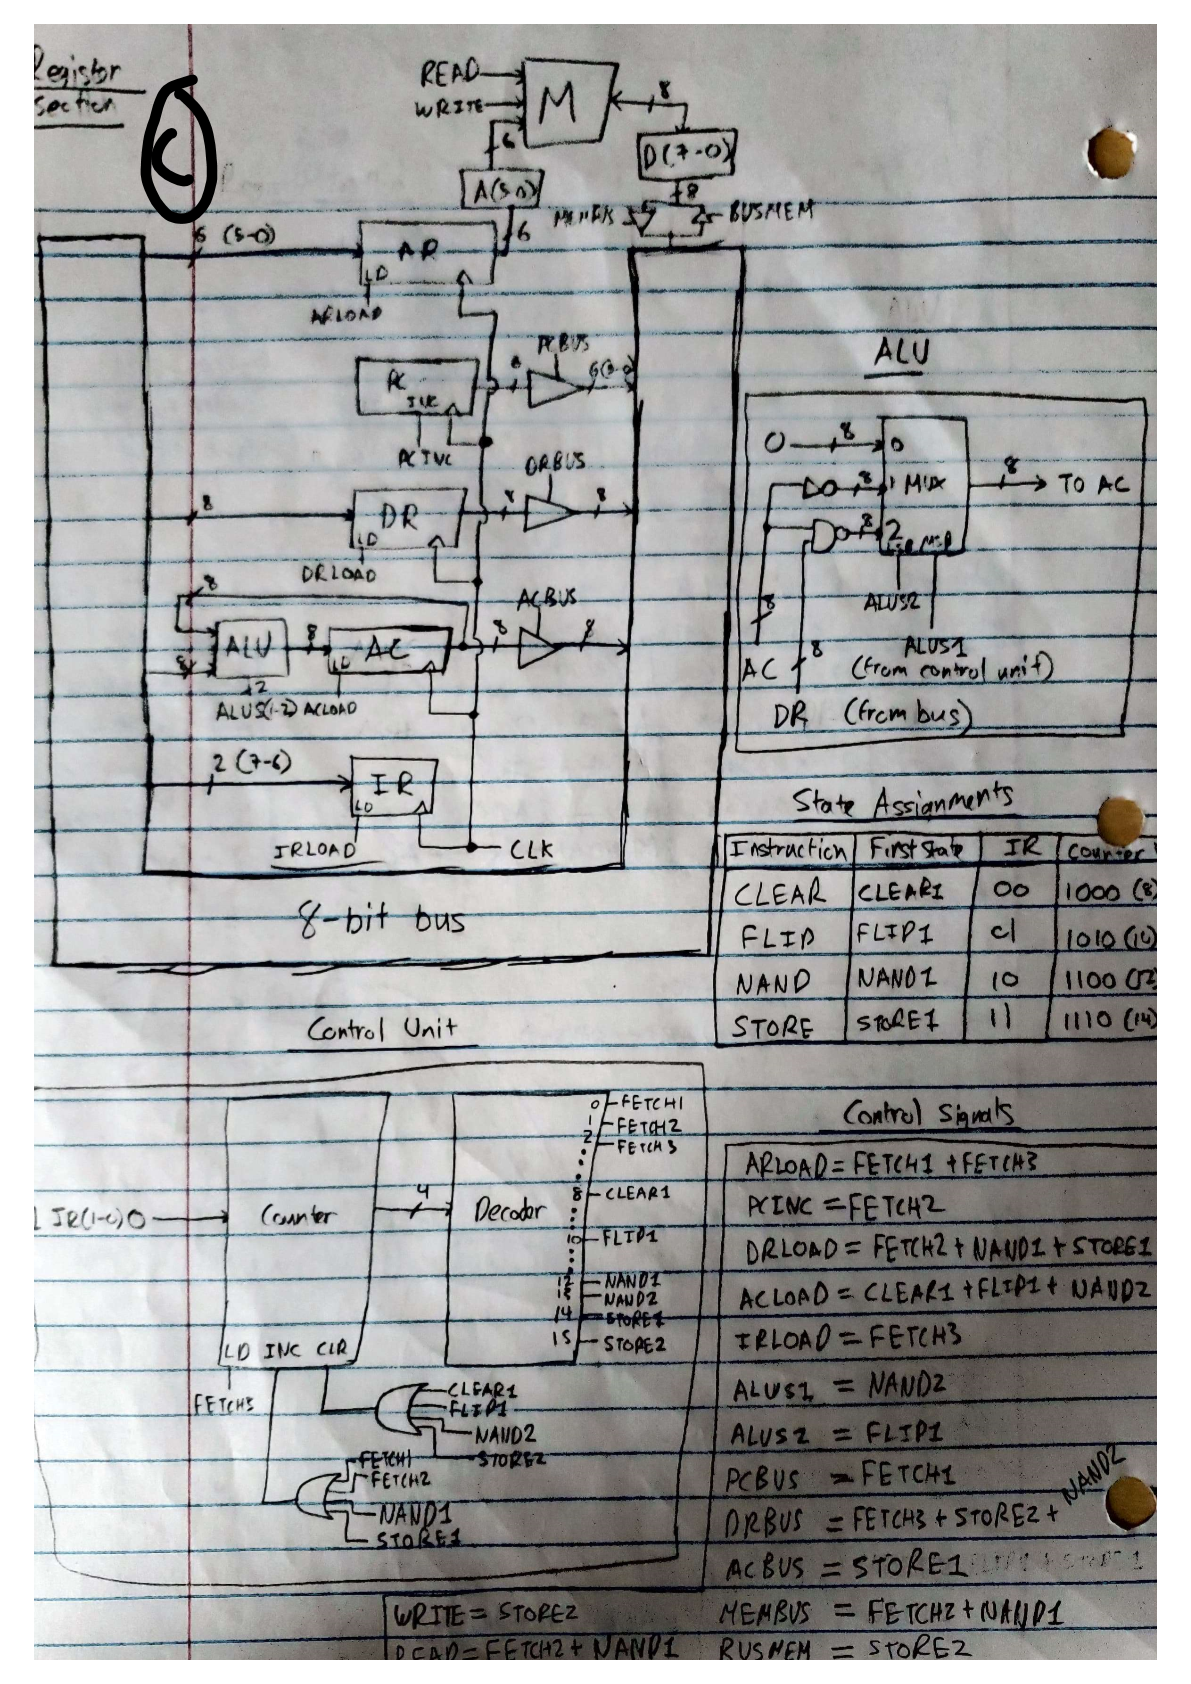 Register
section
C
READ
WRITE
M
8
6
D(7-0)
A(5-0)
8
MEMBUS
BUSMEM
6 (5-0)
AR
6
LD
ARLOAD
PCBUS
PC
8
6(5-0)
INC
PCINC
DRBUS
8
DR
8
8
LD
DRLOAD
8
ACBUS
ALU
8
AC
8
8
8
LD
2
ALUS(1-2) ACLOAD
2 (7-6)
IR
LD
IRLOAD
CLK
8-bit bus
ALU
0
8
0
8
1 MUX
8
TO AC
8
2
LSB MSB
ALUS2
8
ALUS1
AC
8
(from control unit)
DR (from bus)
State Assignments
Instruction First State IR Counter
CLEAR CLEAR1 00 1000 (8)
FLIP FLIP1 01 1010 (10)
NAND NAND1 10 1100 (12)
STORE STORE1 11 1110 (14)
Control Unit
1 IR(1-0)0
Counter
4
Decoder
0 FETCH1
1 FETCH2
2 FETCH3
8 CLEAR1
10 FLIP1
12 NAND1
13 NAND2
14 STORE1
15 STORE2
LD INC CLR
FETCH3
CLEAR1
FLIP1
NAND2
STORE2
FETCH1
FETCH2
NAND1
STORE1
Control Signals
ARLOAD = FETCH1 + FETCH3
PCINC = FETCH2
DRLOAD = FETCH2 + NAND1 + STORE1
ACLOAD = CLEAR1 + FLIP1 + NAND2
IRLOAD = FETCH3
ALUS1 = NAND2
ALUS2 = FLIP1
PCBUS = FETCH1
DRBUS = FETCH3 + STORE2 + NAND2
ACBUS = STORE1
MEMBUS = FETCH2 + NAND1
BUSMEM = STORE2
WRITE = STORE2
READ = FETCH2 + NAND1